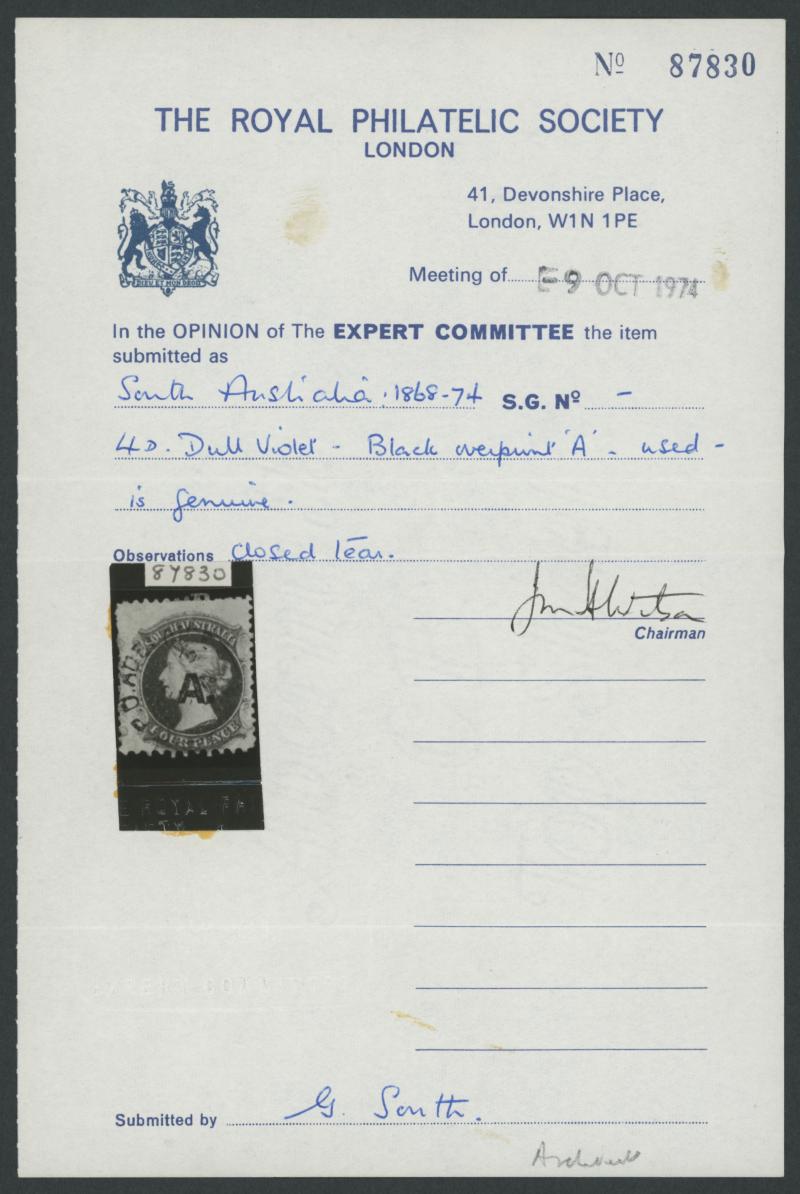 Nº 87830
THE ROYAL PHILATELIC SOCIETY
LONDON
41, Devonshire Place,
London, W1N 1PE
DIEU ET MON DROIT
Meeting of E-9 OCT 1974
In the OPINION of The EXPERT COMMITTEE the item
submitted as
South Australia. 1868-74 S.G. Nº -
4D. Dull Violet - Black overprint 'A' - used -
is genuine.
Observations Closed tear.
87830
SOUTH AUSTRALIA
A.
FOUR PENCE
ROYAL
Chairman
Submitted by G. South.